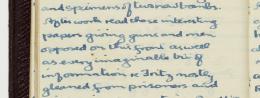 and specimens of turned bombs.
After work read these interesting
papers giving guns and men
opposed on this front as well
as every imaginable bit of
information re Fritz mostly
gleaned from prisoners and